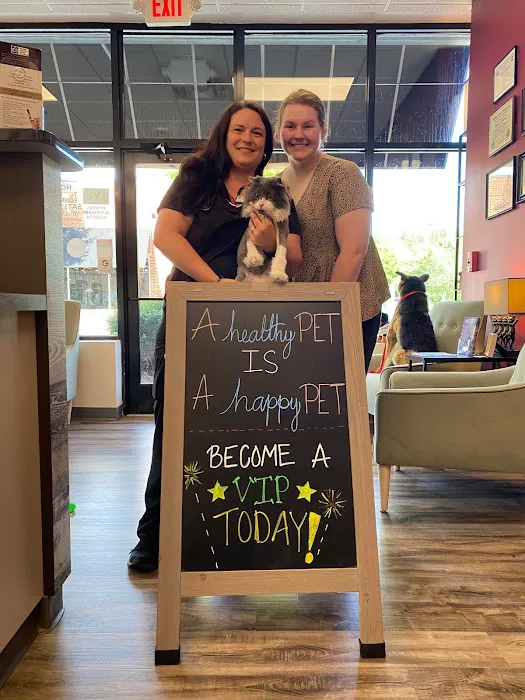 EXIT
A healthy PET
IS
A happy PET
BECOME A
VIP
TODAY!